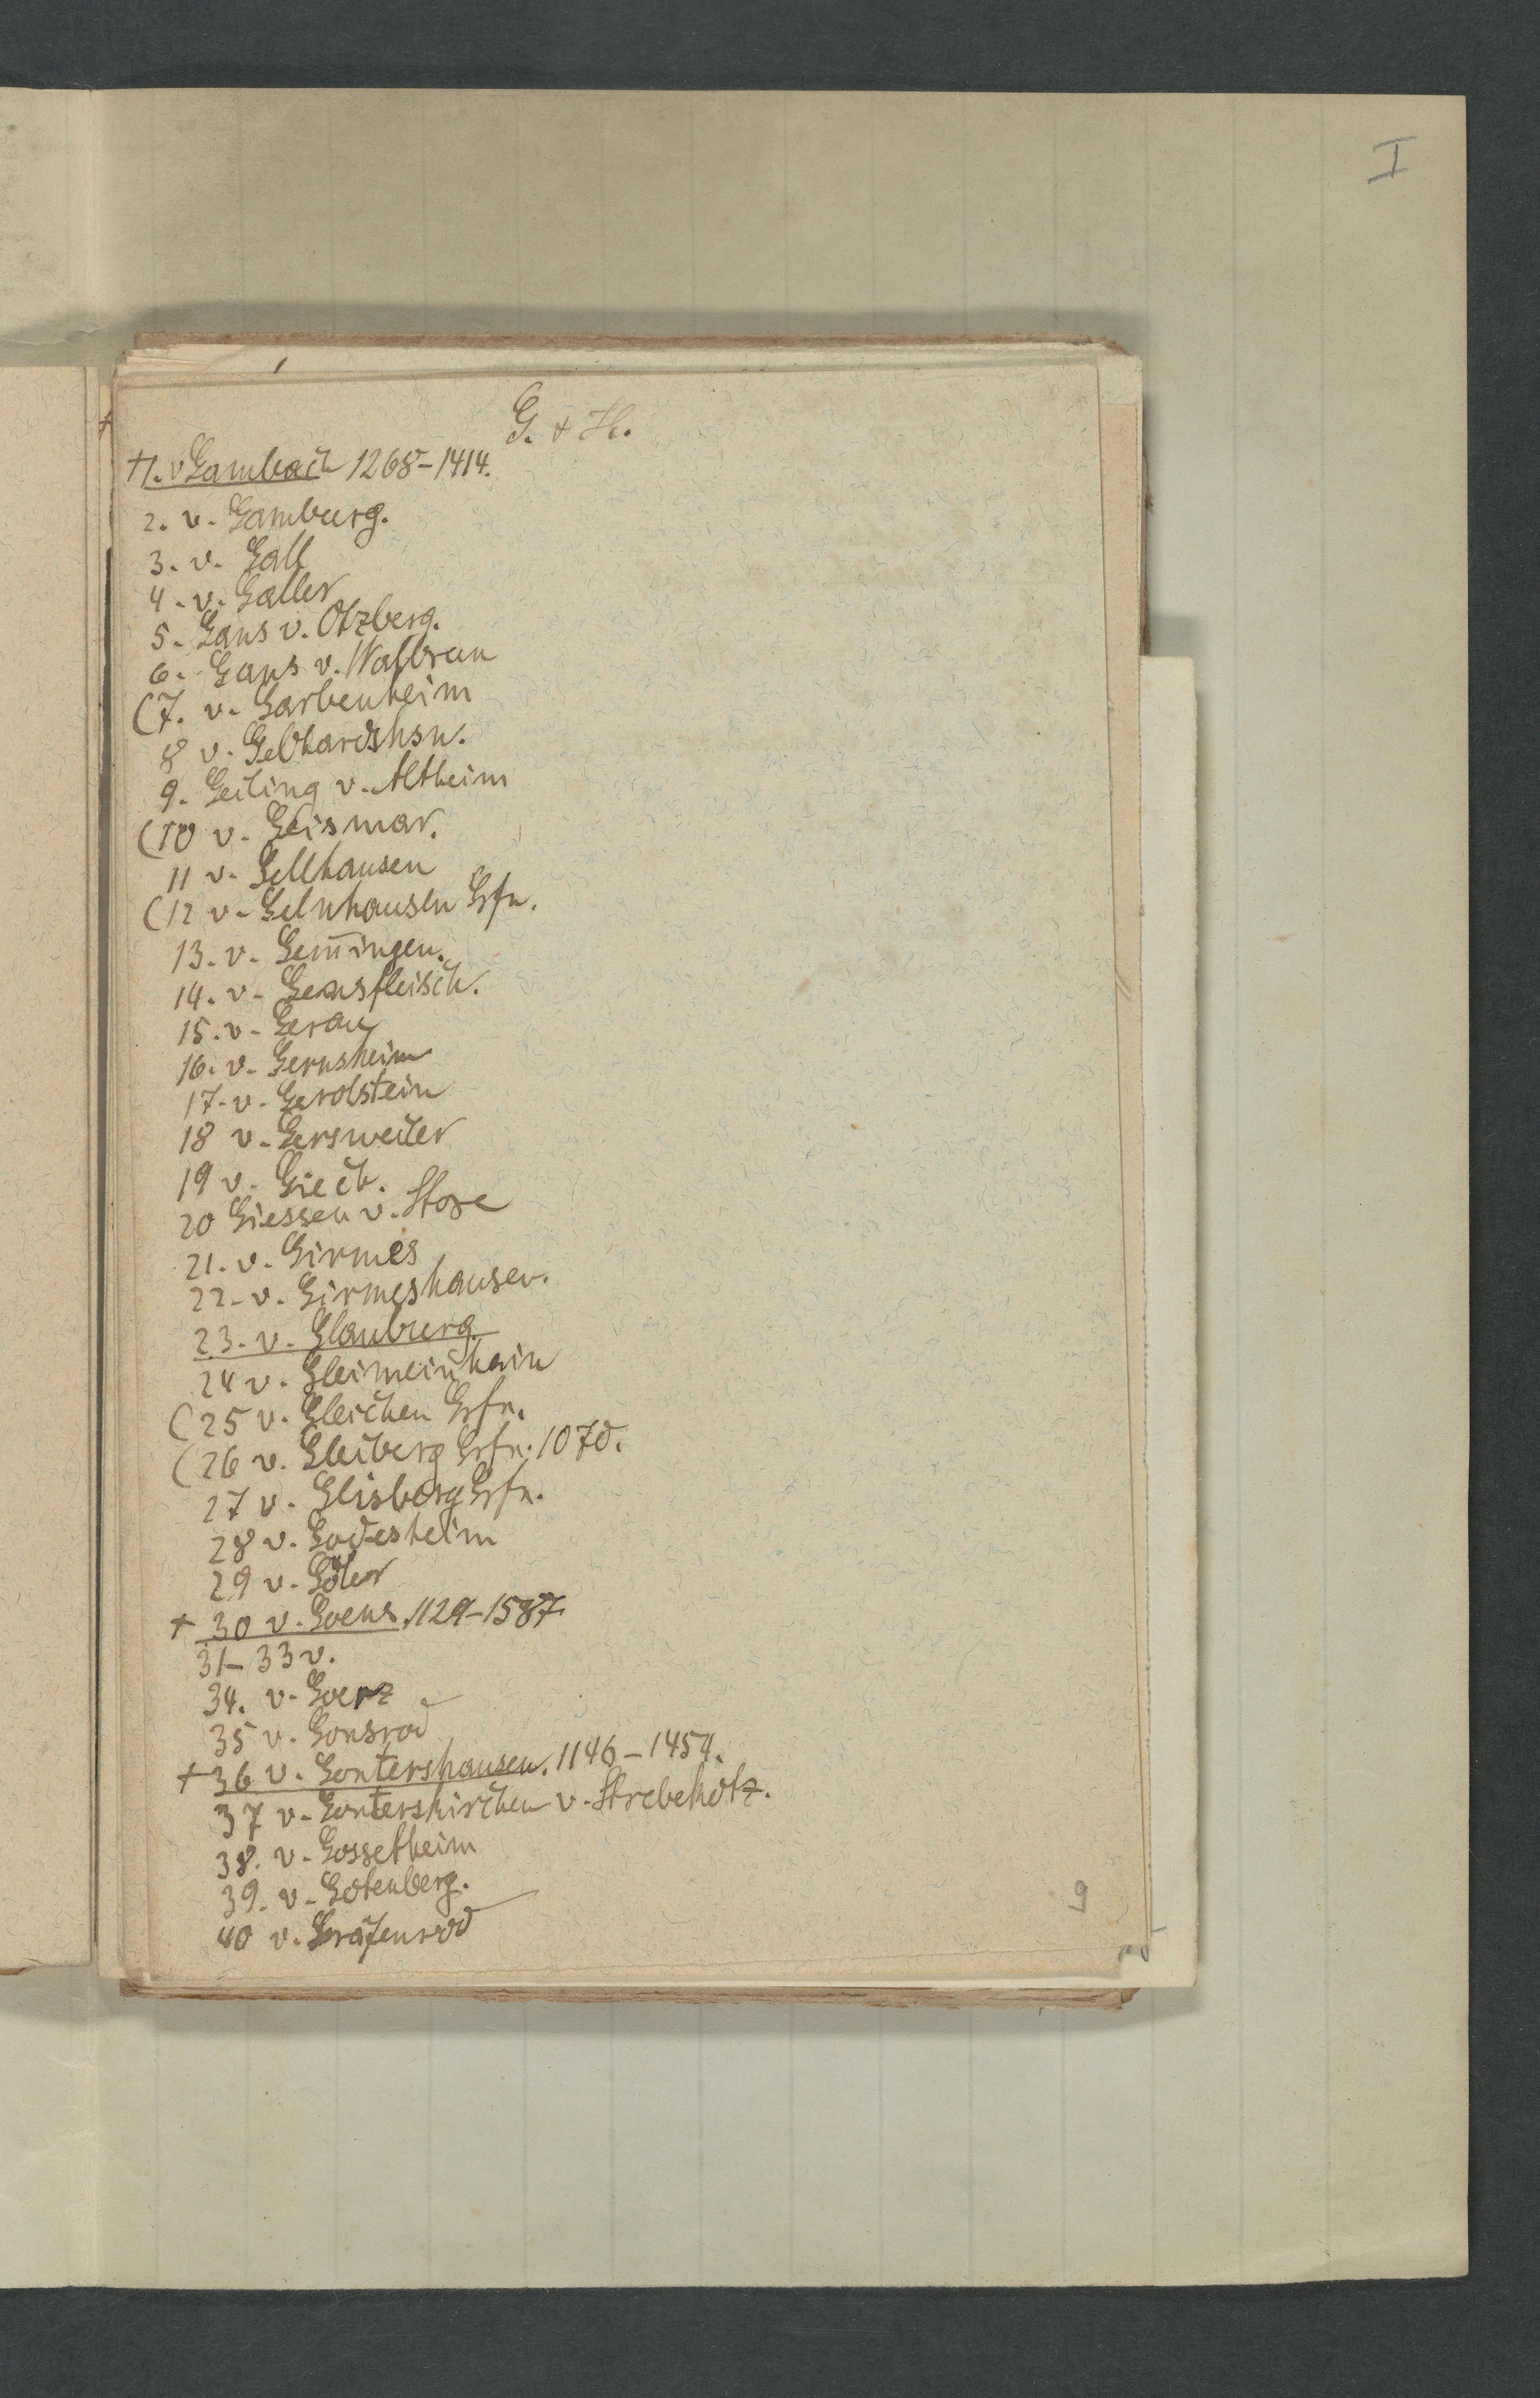 I
G. + H.
+1. v Gambach 1268-1414.
2. v. Gamburg.
3. v. Gall
4. v. Galler
5. Gans v. Otzberg.
6. Gans v. Walbrun
(7. v. Garbenheim
8 v. Gebhardshsn.
9. Geiling v. Altheim
(10 v. Geismar.
11 v. Gellhausen
(12 v. Gelnhausen Grfn.
13. v. Gem̄ingen.
14. v. Gensfleisch.
15. v. Gerau
16. v. Gernsheim
17. v. Gerolstein
18 v. Gersweiler
19 v. Giech.
20 Giessen v.
21. v. Girmes
22. v. Girmeshausen.
23. v. Glauburg
24 v. Gleimeinhain
(25 v. Gleichen Grfn.
(26 v. Gleiberg Grfn. 1070.
27 v. Glisberg Grfn.
28 v. Godesheim
29 v. Göler
+ 30 v. Goens. 1129-1587
31-33 v.
34. v. Goerz
35 v. Gonsrod
+ 36 v. Gontershausen. 1146-1454.
37 v. Gonterskirchen v. Strebekotz.
38. v. Gossetheim
39. v. Gotenberg.
40 v. Gräfenrod
9